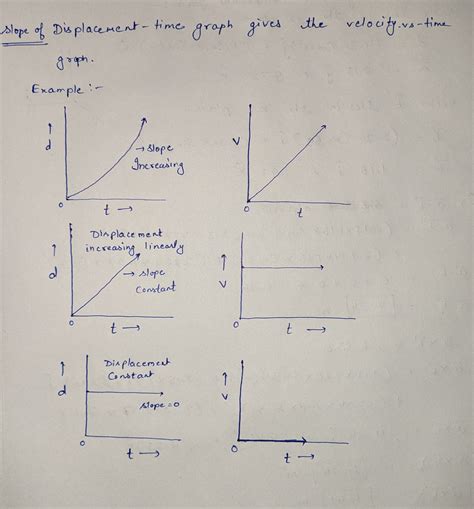 slope of Displacement-time graph gives the velocity.vs-time
graph.
Example :-
↑
d
→ slope
Increasing
0
t →
v
0
t
Displacement
increasing linearly
↑
d
→ slope
Constant
0
t →
↑
v
0
t →
Displacement
Constant
↑
d
slope=0
0
t →
↑
v
0
t →